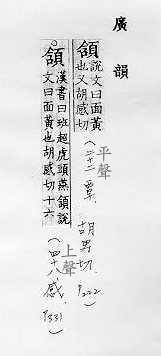 廣韻
頷說文曰面黃
也又胡感切
平聲
(二十二 覃 胡男切. P222)
頷漢書曰班超虎頭燕頷說
文曰面黃也胡感切十六
上聲
(四十八、感 P331)